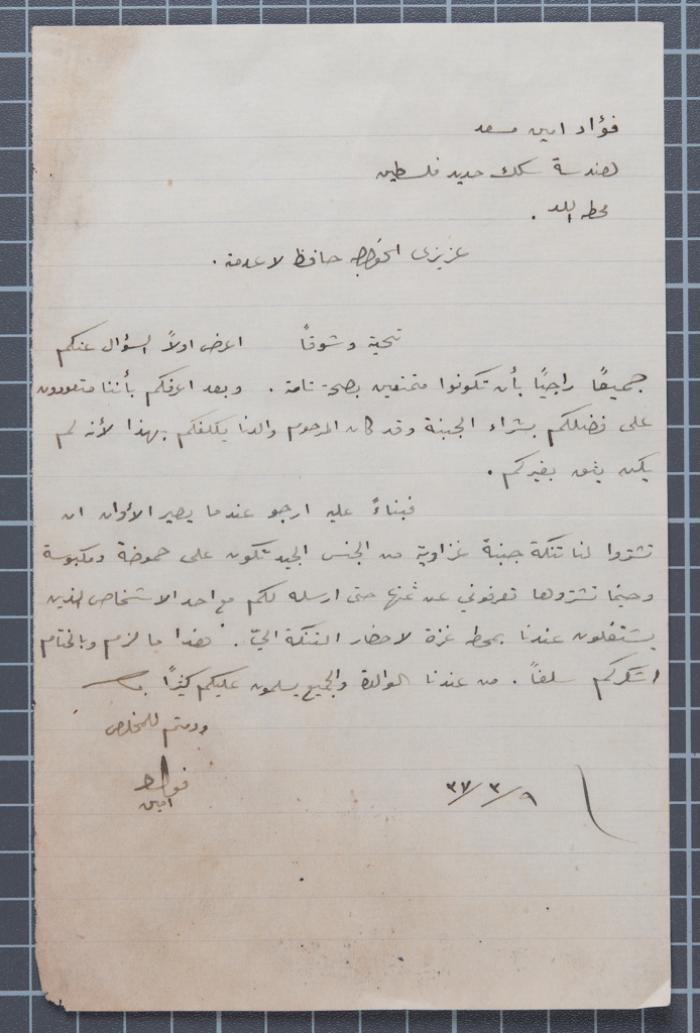 فؤاد امين مسعد
هندسة سكك حديد فلسطين
محطه اللد .
عزيزي الخواجه حافظ لا عدمته .
تحية وشوقاً اعرض اولاً السؤال عنكم
جميعًا راجيًا بأن تكونوا متمتعين بصحة تامة . وبعد اعرفكم بأننا متعودون
على فضلكم بشراء الجبنة وقد كان المرحوم والدنا يكلفكم بهذا لأنه لم
يكن يثق بغيركم .
فبناءً عليه ارجو عندما يصير الأوان ان
تشتروا لنا تنكة جبنة غزاوية من الجنس الجيد تكون على حموضة ومكبوسة
وحينما تشتروها تعرفوني عن ثمنها حتى ارسله لكم مع احد الاشخاص الذين
يشتغلون عندنا بمحطه غزة لاحضار التنكة اليّ . هذا ما لزم وبالختام
اشكركم سلفاً . من عندنا الوالدة والجميع يسلمون عليكم كثيرًا
ودمتم للمخلص
فؤاد
امين
٣٧/٣/٩